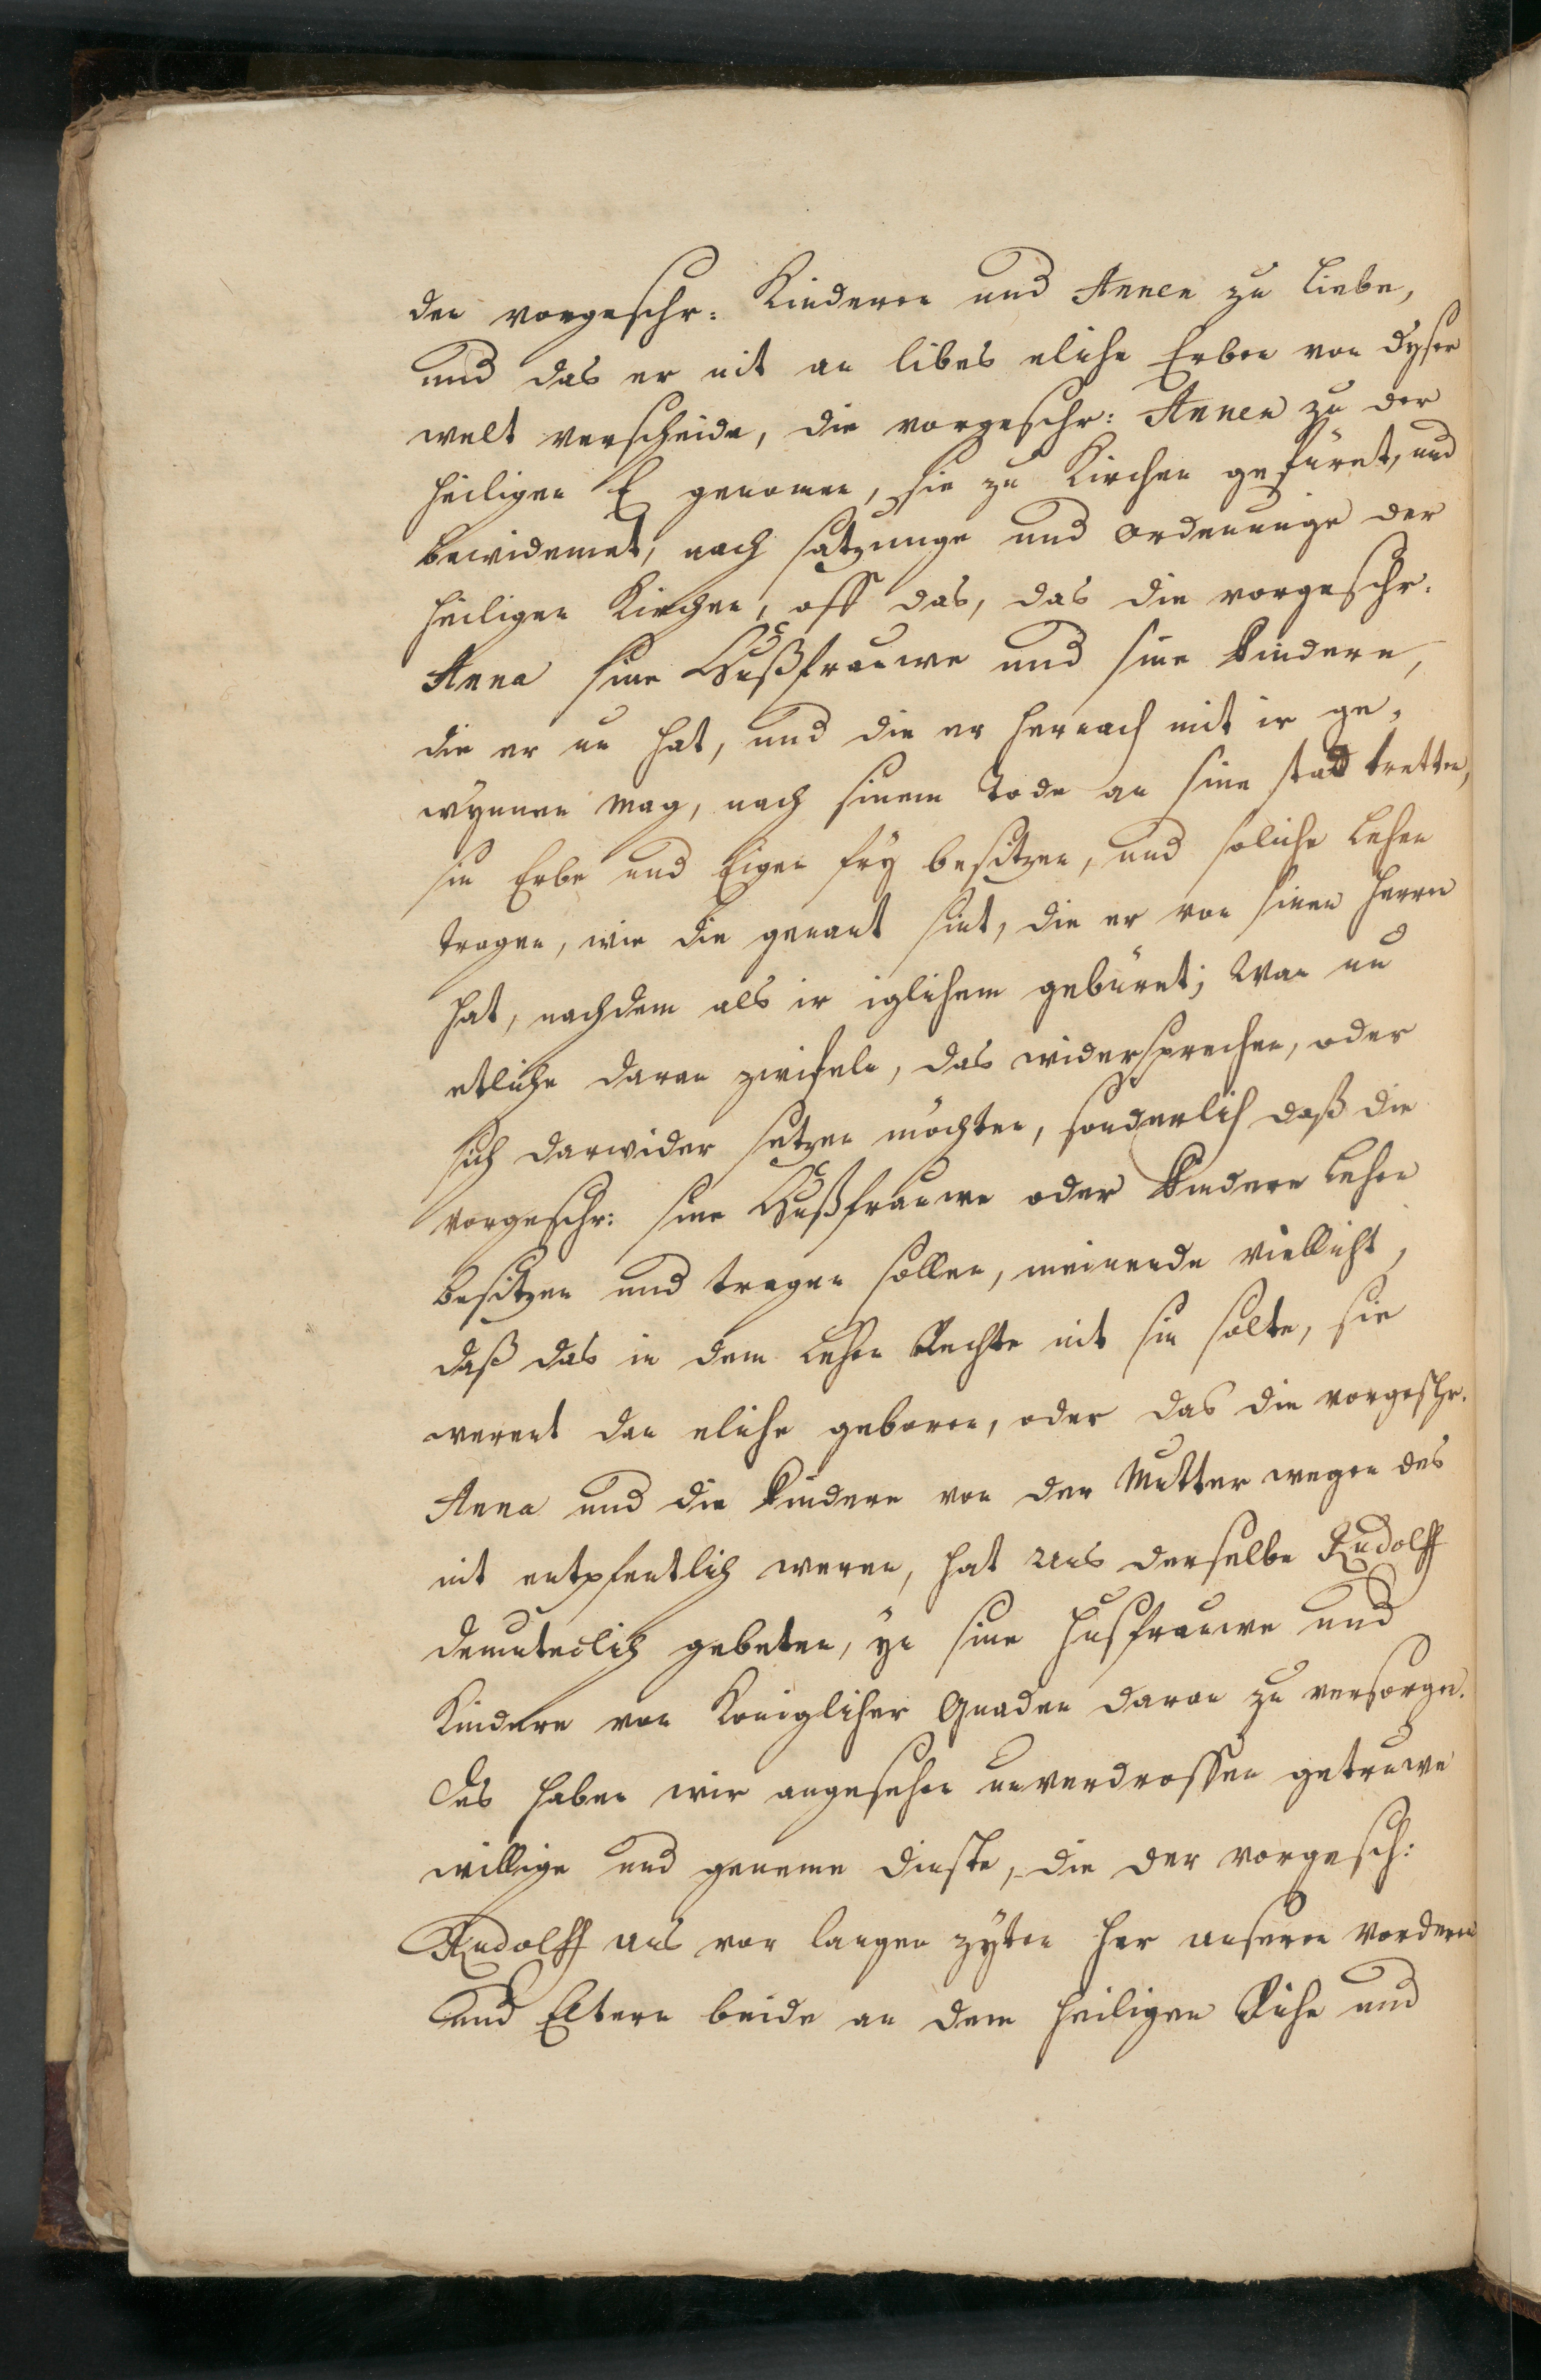 den vorgeschr: Kinderen und Annen zu liebe,
und das er nit an libes eliche Erben von dyser
welt verscheide, die vorgeschr: Annen zu der
heiligen E genomen, sie zu Kirchen gefüret, und
bewidemet, nach satzunge und ordenunge der
heiligen Kirchen, off das, das die vorgeschr.
Anna sine Hußfrauwe und sine Kindere,
die er nu hat, und die er hernach mit ir ge-
wynnen mag, nach sinem Tode an sine stad tretten,
sin Erbe und Eigen fry besitzen, und soliche Lehen
tragen, wie die genant sint, die er von sinen Herren
hat, nachdem als ir iglichem gebüret; Wan nu
etliche daran zwifeln, das widersprechen, oder
sich darwider setzen möchten, sonderlich daß die
vorgeschr: sine Hußfrauwe oder Kindere Lehen
besitzen und tragen sollen, meinende villicht,
daß das in dem Lehen Rechte nit sin solte, sie
werent dan eliche geboren, oder das die vorgeschr.
Anna und die Kindere von der Mutter wegen des
nit entpfentlich weren, hat uns derselbe Rudolff
demuteclich gebeten, yn sine Husfrauwe und
Kindere von Koniglicher Gnaden daran zu versorgen.
Des haben wir angesehen unverdrossen getruwe
willige und geneme dienste, die der vorgesch:
Rudolff uns vor langen zyten her unseren Vorderen
und Eltern beide an dem heiligen Riche und